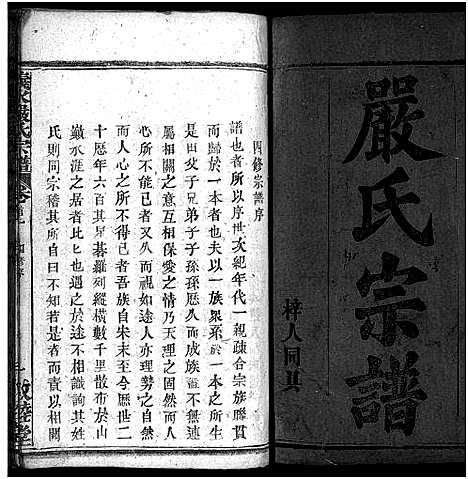 嚴氏宗譜
梓人同具
四修宗譜序
譜也者所以序世次紀年代一親疎合宗族聯貫
而歸於一本者也夫以一族衆系於一本之所生
是由父子兄弟子子孫孫歷久而成族溢不無連
屬相關之意互相保愛之情乃天理之固然而人
心所不能已者也如遠人亦理勢之自然
而人心亦不得已者吾族自宋末至今歷世二
十歷年六百其星碁羅列縱橫數千里散布於山
巔水涯之居者比比也遇之於途不相識詢其姓
氏則同宗稽其所自曰不知若是者而責以相關
嚴氏宗譜
四修序
敦睦堂